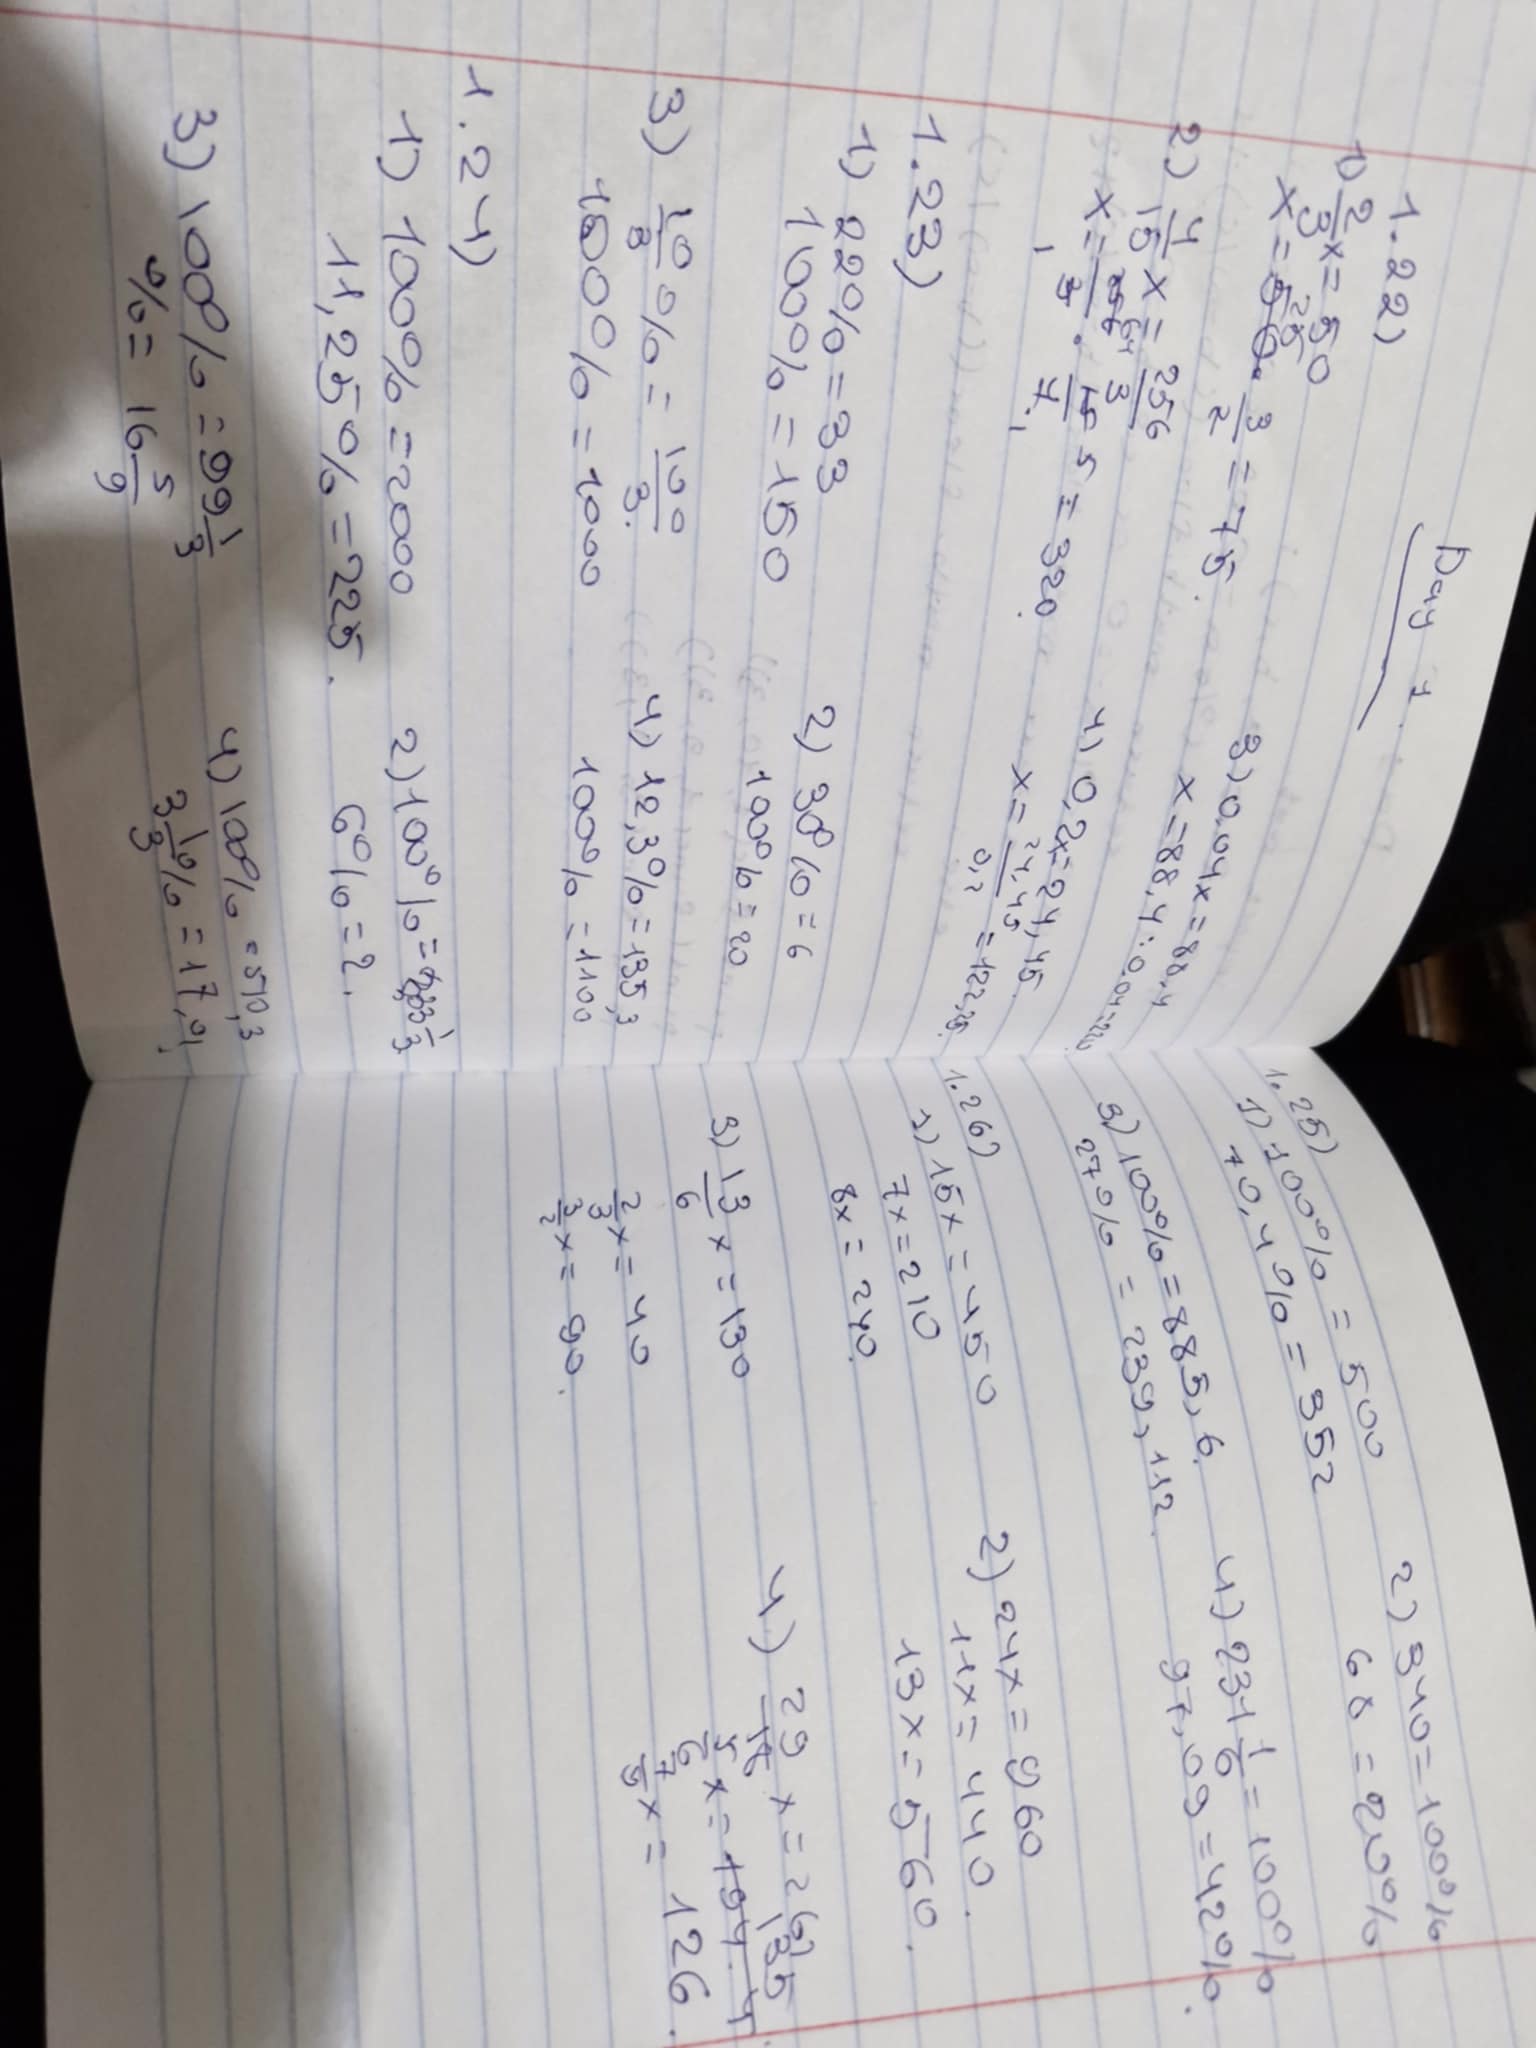 Day 1.
1.22)
1) 2/3 x = 50
x = 50 25 · 3/2 = 75.
2) 4/15 x = 256/3
x = 256 64/3 1 · 15 5/4 1 = 320.
3) 0,04x = 88,4
x = 88,4 : 0,04 = 2210
4) 0,2x = 24,45.
x = 24,45/0,2 = 122,25.
1.23)
1) 22% = 33
100% = 150
2) 30% = 6
100% = 20
3) 10/3 % = 100/3.
100% = 1000
4) 12,3% = 135,3
100% = 1100
1.24)
1) 100% = 2000
11,25% = 225.
2) 100% = 33 1/3
6% = 2.
3) 100% = 99 1/3
% = 16 5/9
4) 100% = 510,3
3 1/3 % = 17,01.
1.25)
1) 100% = 500
70,4% = 352
2) 340 = 100%
68 = 20%
3) 100% = 885,6.
27% = 239,112.
4) 231 1/6 = 100%
97,09 = 42%.
1.26)
1) 15x = 450
7x = 210
8x = 240.
2) 24x = 960
11x = 440.
13x = 560.
3) 13/6 x = 130
2/3 x = 40
3/2 x = 90.
4) 29/18 x = 261
5/6 x = 135
7/9 x = 126.